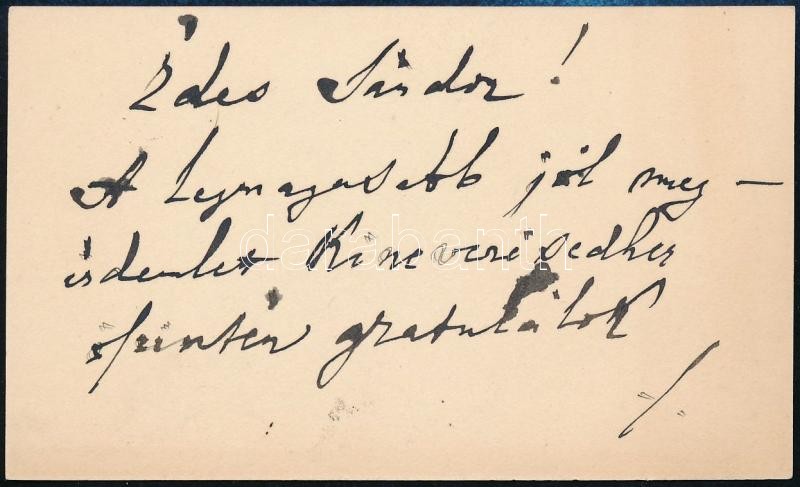 Édes Sándor!
A legmagasabb jól meg-
érdemlet kinevezésedhez
őszintén gratulálok
./.
darabanth